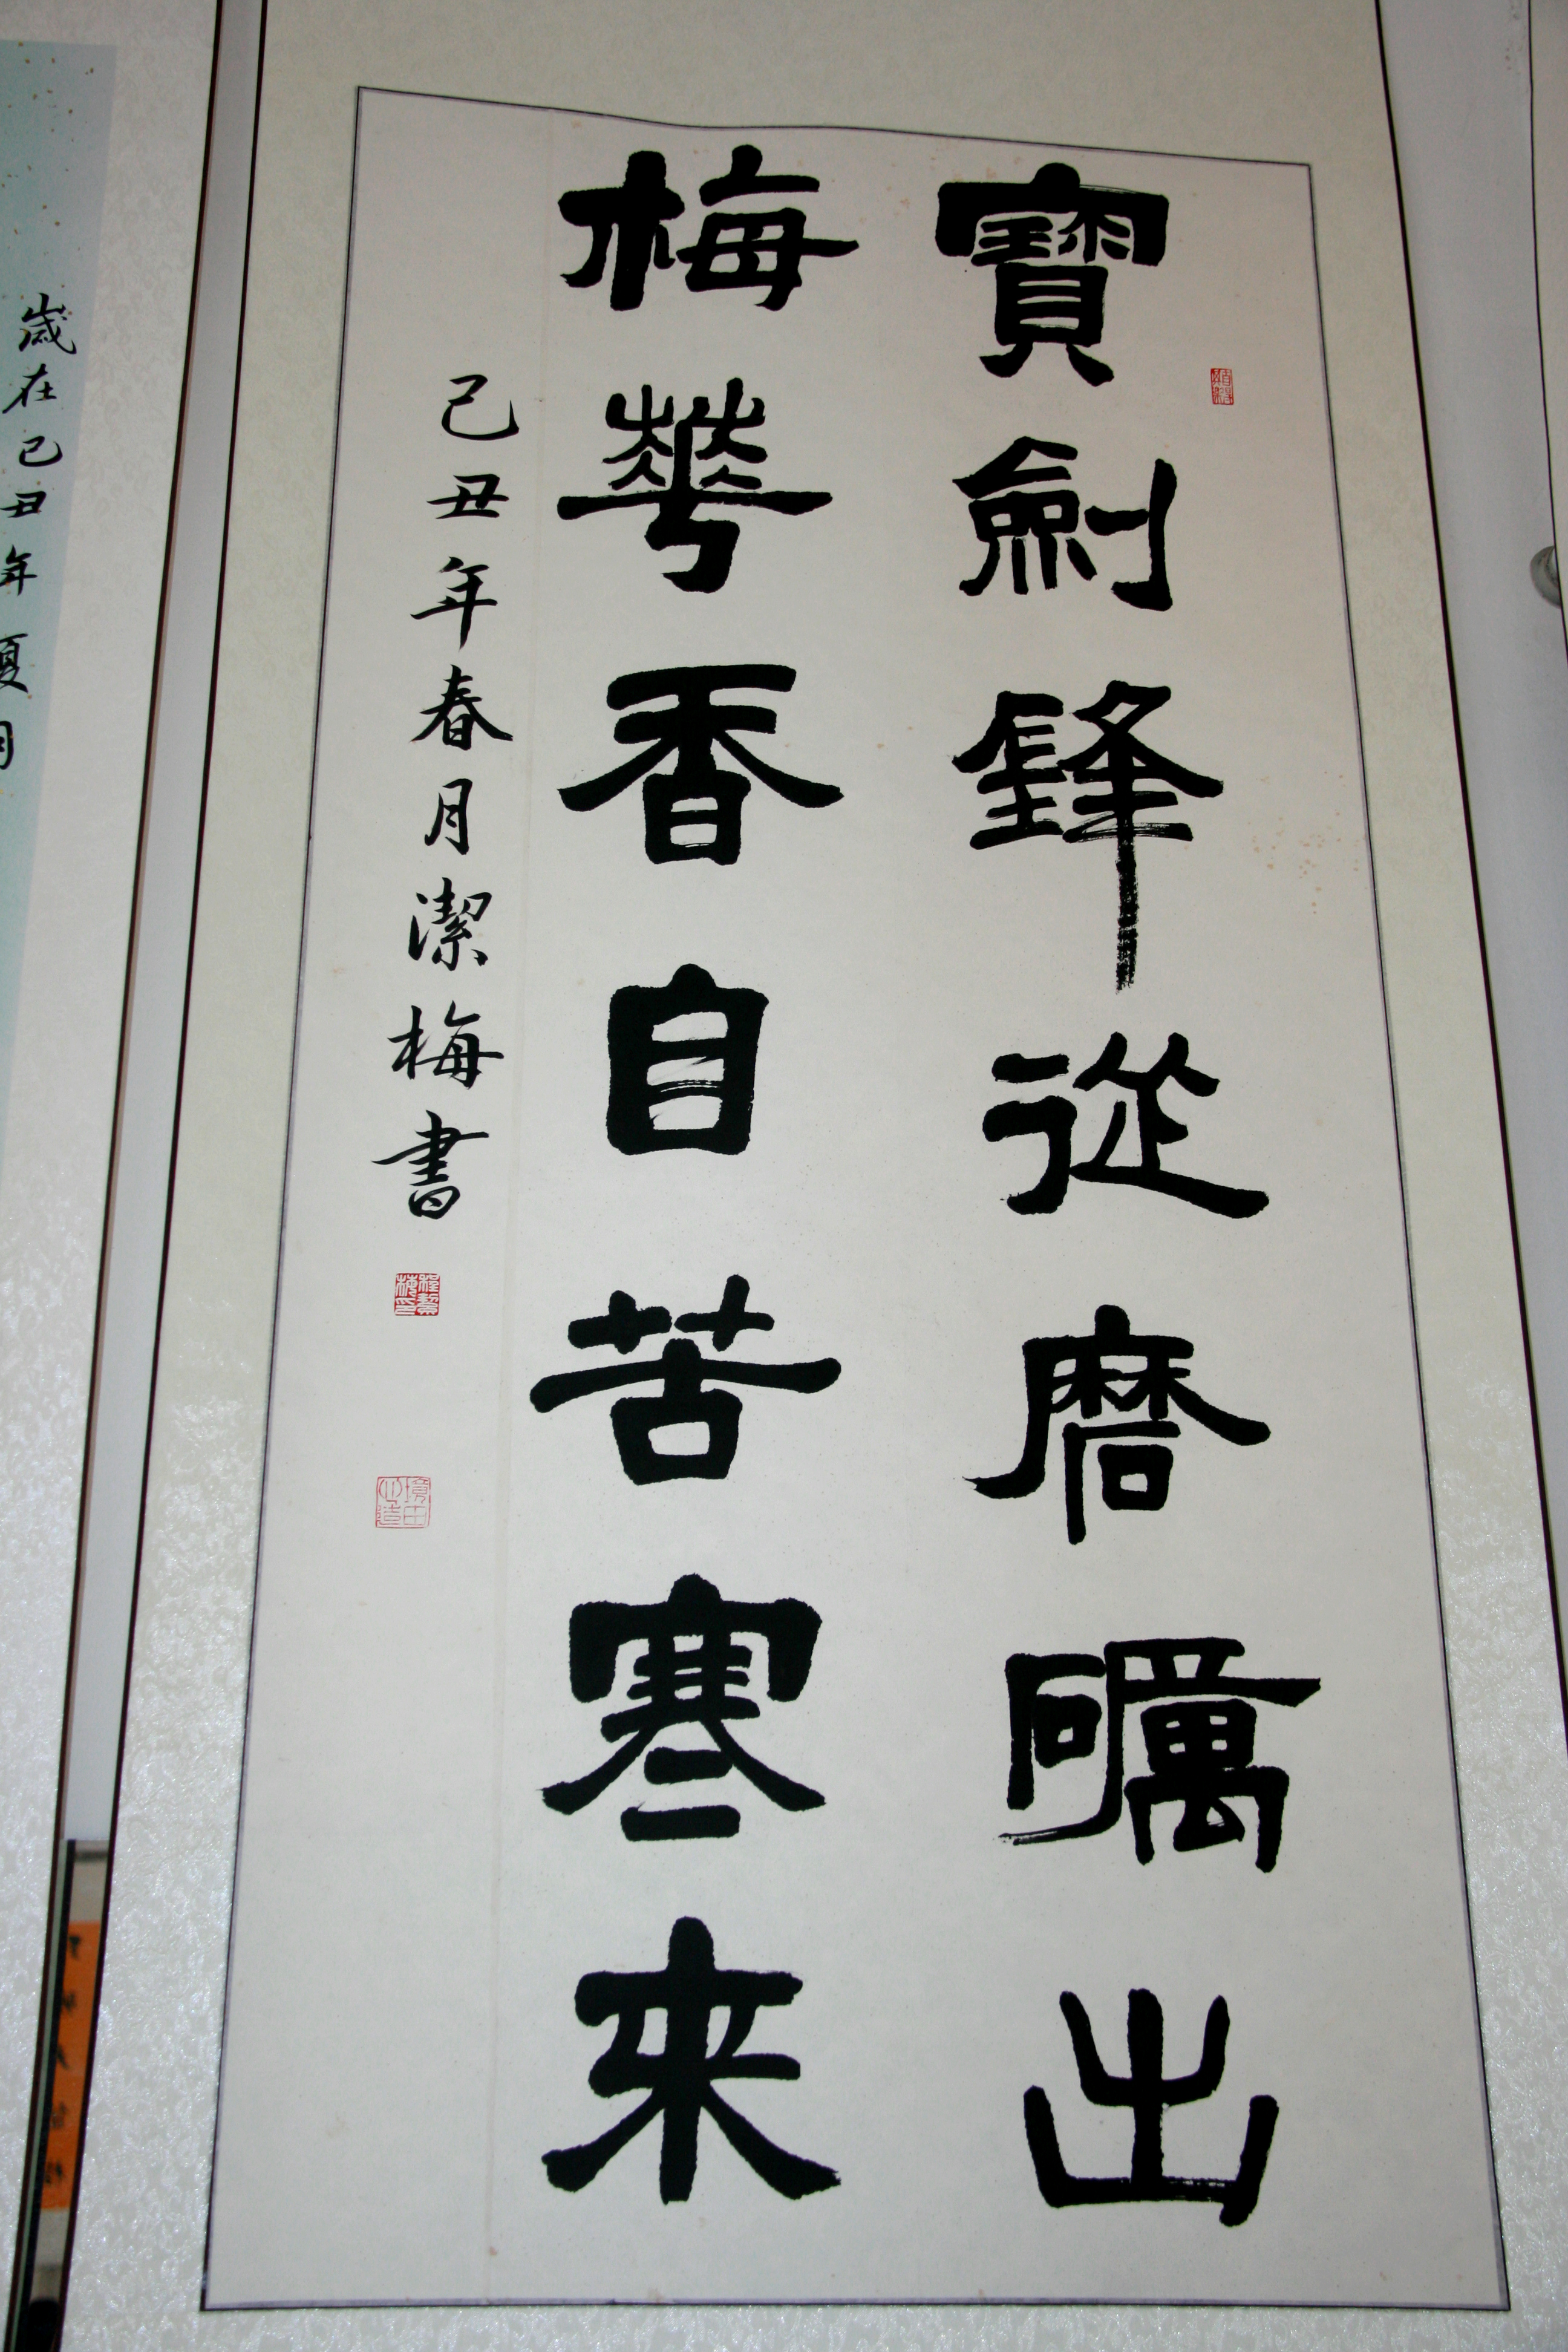 寶劍鋒從磨礪出
梅華香自苦寒來
己丑年春月潔梅書
歲在己丑年夏月